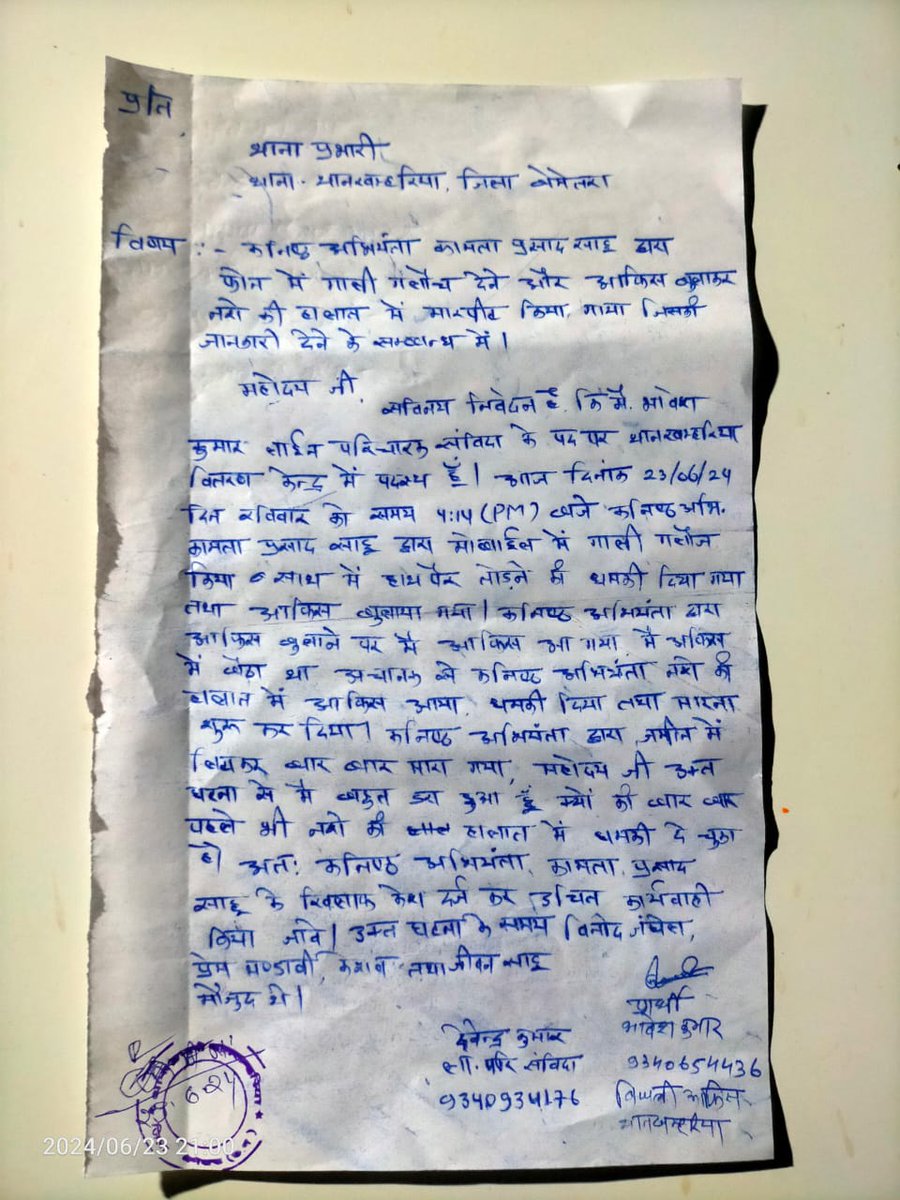 प्रति,
थाना प्रभारी
थाना - थानखम्हरिया, जिला बेमेतरा
विषय :- कनिष्ठ अभियंता कामता प्रसाद साहू द्वारा
फोन में गाली गलौच देने और आफिस बुलाकर
नशे की हालात में मारपीट किया गया जिसकी
जानकारी देने के सम्बन्ध में।
महोदय जी,
सविनय निवेदन है कि मै भावेश
कुमार लाईन परिचारक संविदा के पद पर थानखम्हरिया
वितरण केन्द्र में पदस्थ हूँ। आज दिनांक 23/06/24
दिन रविवार को समय 4:14 (PM) बजे कनिष्ठ अभि.
कामता प्रसाद साहू द्वारा मोबाईल में गाली गलौज
किया व साथ में हाथ पैर तोड़ने की धमकी दिया गया
तथा आफिस बुलाया गया। कनिष्ठ अभियंता द्वारा
आफिस बुलाने पर मै आफिस आ गया मै आफिस
में बैठा था अचानक से कनिष्ठ अभियंता नशे की
हालात में आफिस आया, धमकी दिया तथा मारना
शुरू कर दिया। कनिष्ठ अभियंता द्वारा जमीन में
बार बार मारा गया, महोदय जी उक्त
घटना से मै बहुत डरा हुआ हूँ क्यों की बार बार
पहले भी नशे की हालात में धमकी दे चुका
है। अतः कनिष्ठ अभियंता कामता प्रसाद
साहू के खिलाफ केश दर्ज कर उचित कार्यवाही
किया जावे। उक्त घटना के समय विनोद
प्रेम मण्डावी, केशव तथा जीवन साहू
मौजुद थे।
प्रार्थी
भावेश कुमार
9340654436
बिजली आफिस
थानखम्हरिया
देवेन्द्र कुमार
ला. परि संविदा
9340934176
2024/06/23 21:00